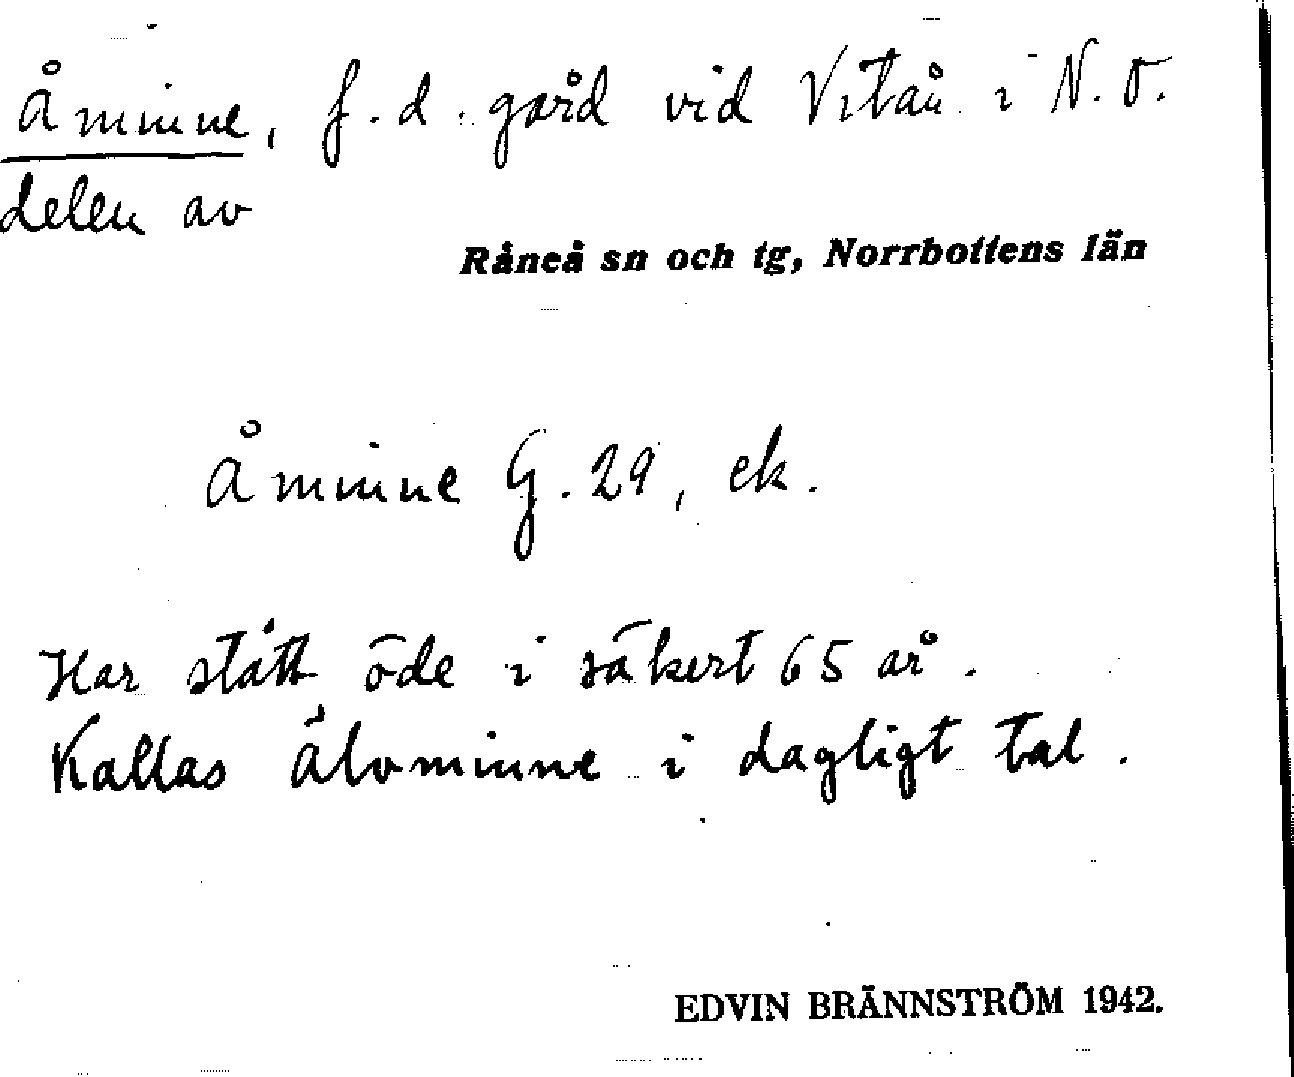 Åminne, f.d. gård vid Vitån i N.Ö.
delen av
Råneå sn och tg, Norrbottens län
Åminne G.29, ek.
Har stått öde i säkert 65 år.
Kallas Älvminne i dagligt tal.
EDVIN BRÄNNSTRÖM 1942.